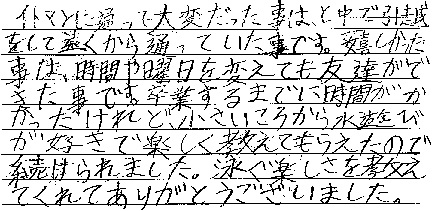 イトマンに通って大変だった事は、と中で引越
をして遠くから通っていた事です。嬉しかった
事は、時間や曜日を変えても友達がで
きた事です。卒業するまでに時間がか
かったけれど、小さいころから水遊び
が好きで楽しく教えてもらえたので
続けられました。泳ぐ楽しさを教え
てくれてありがとうございました。